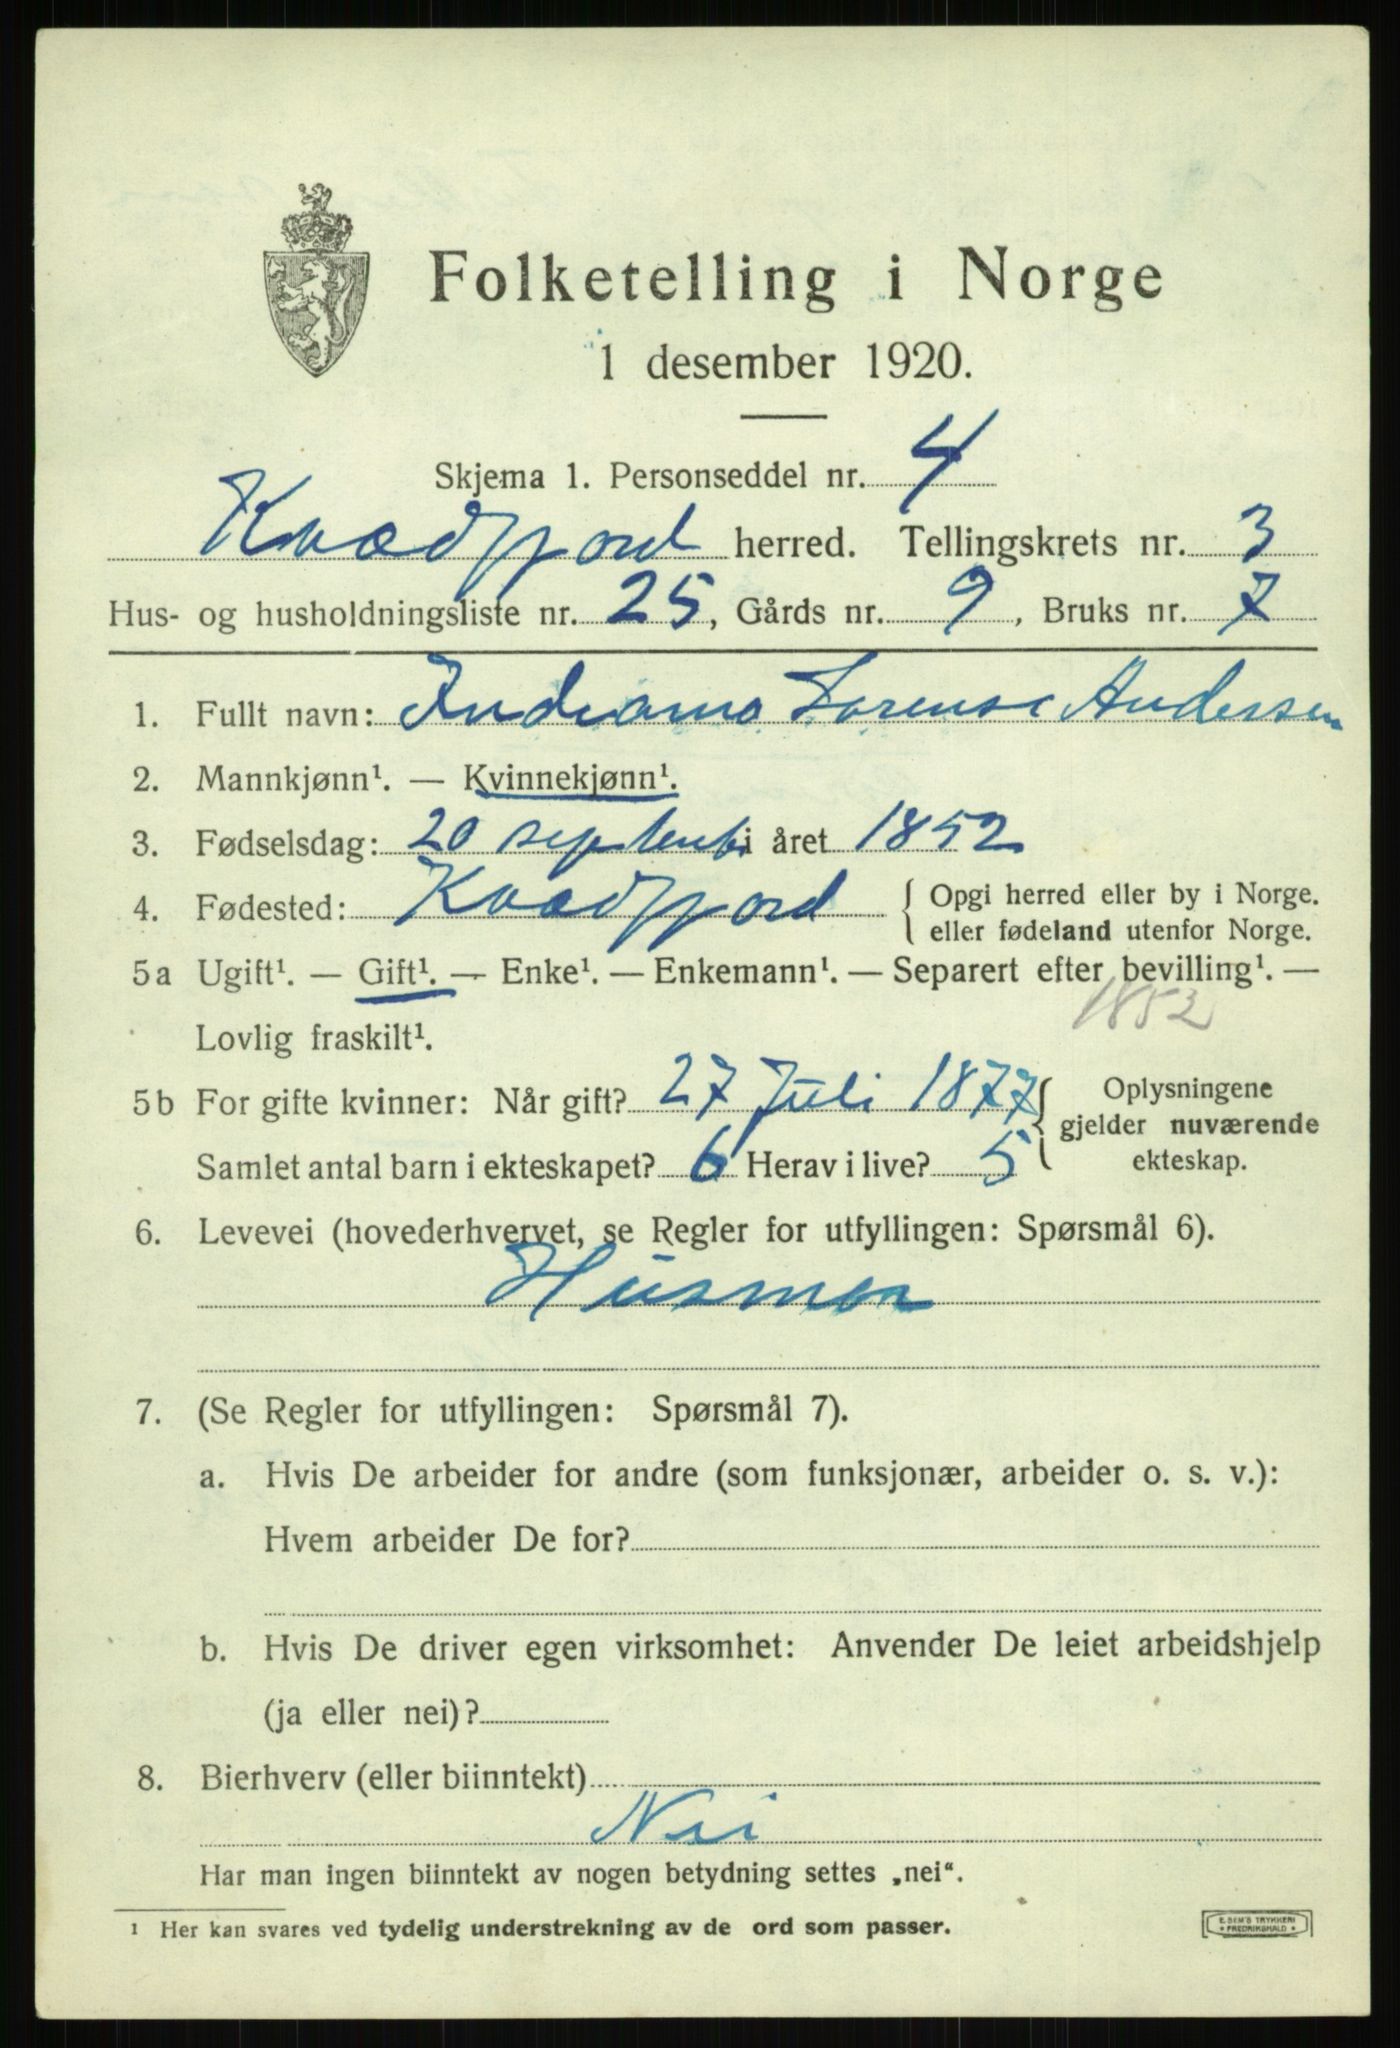 Folketelling i Norge
1 desember 1920.
Skjema 1. Personseddel nr. 4
Kvædfjord herred. Tellingskrets nr. 3
Hus- og husholdningsliste nr. 25, Gårds nr. 9, Bruks nr. 7
1. Fullt navn: Indiana Lorense Andersen
2. Mannkjønn¹. — Kvinnekjønn¹.
3. Fødselsdag: 20 septenb i året 1852
4. Fødested: Kvædfjord { Opgi herred eller by i Norge.
eller fødeland utenfor Norge.
5a Ugift¹. — Gift¹. — Enke¹. — Enkemann¹. — Separert efter bevilling¹. —
1852
Lovlig fraskilt¹.
5b For gifte kvinner: Når gift? 27 Juli 1877 { Oplysningene
gjelder nuværende
Samlet antal barn i ekteskapet? 6 Herav i live? 5 ekteskap.
6. Levevei (hovederhvervet, se Regler for utfyllingen: Spørsmål 6).
Husmor
7. (Se Regler for utfyllingen: Spørsmål 7).
a. Hvis De arbeider for andre (som funksjonær, arbeider o. s. v.):
Hvem arbeider De for?
b. Hvis De driver egen virksomhet: Anvender De leiet arbeidshjelp
(ja eller nei)?
8. Bierhverv (eller biinntekt)
Nei
Har man ingen biinntekt av nogen betydning settes „nei“.
¹ Her kan svares ved tydelig understrekning av de ord som passer.
E. SEM'S TRYKKERI
• FREDRIKSHALD •